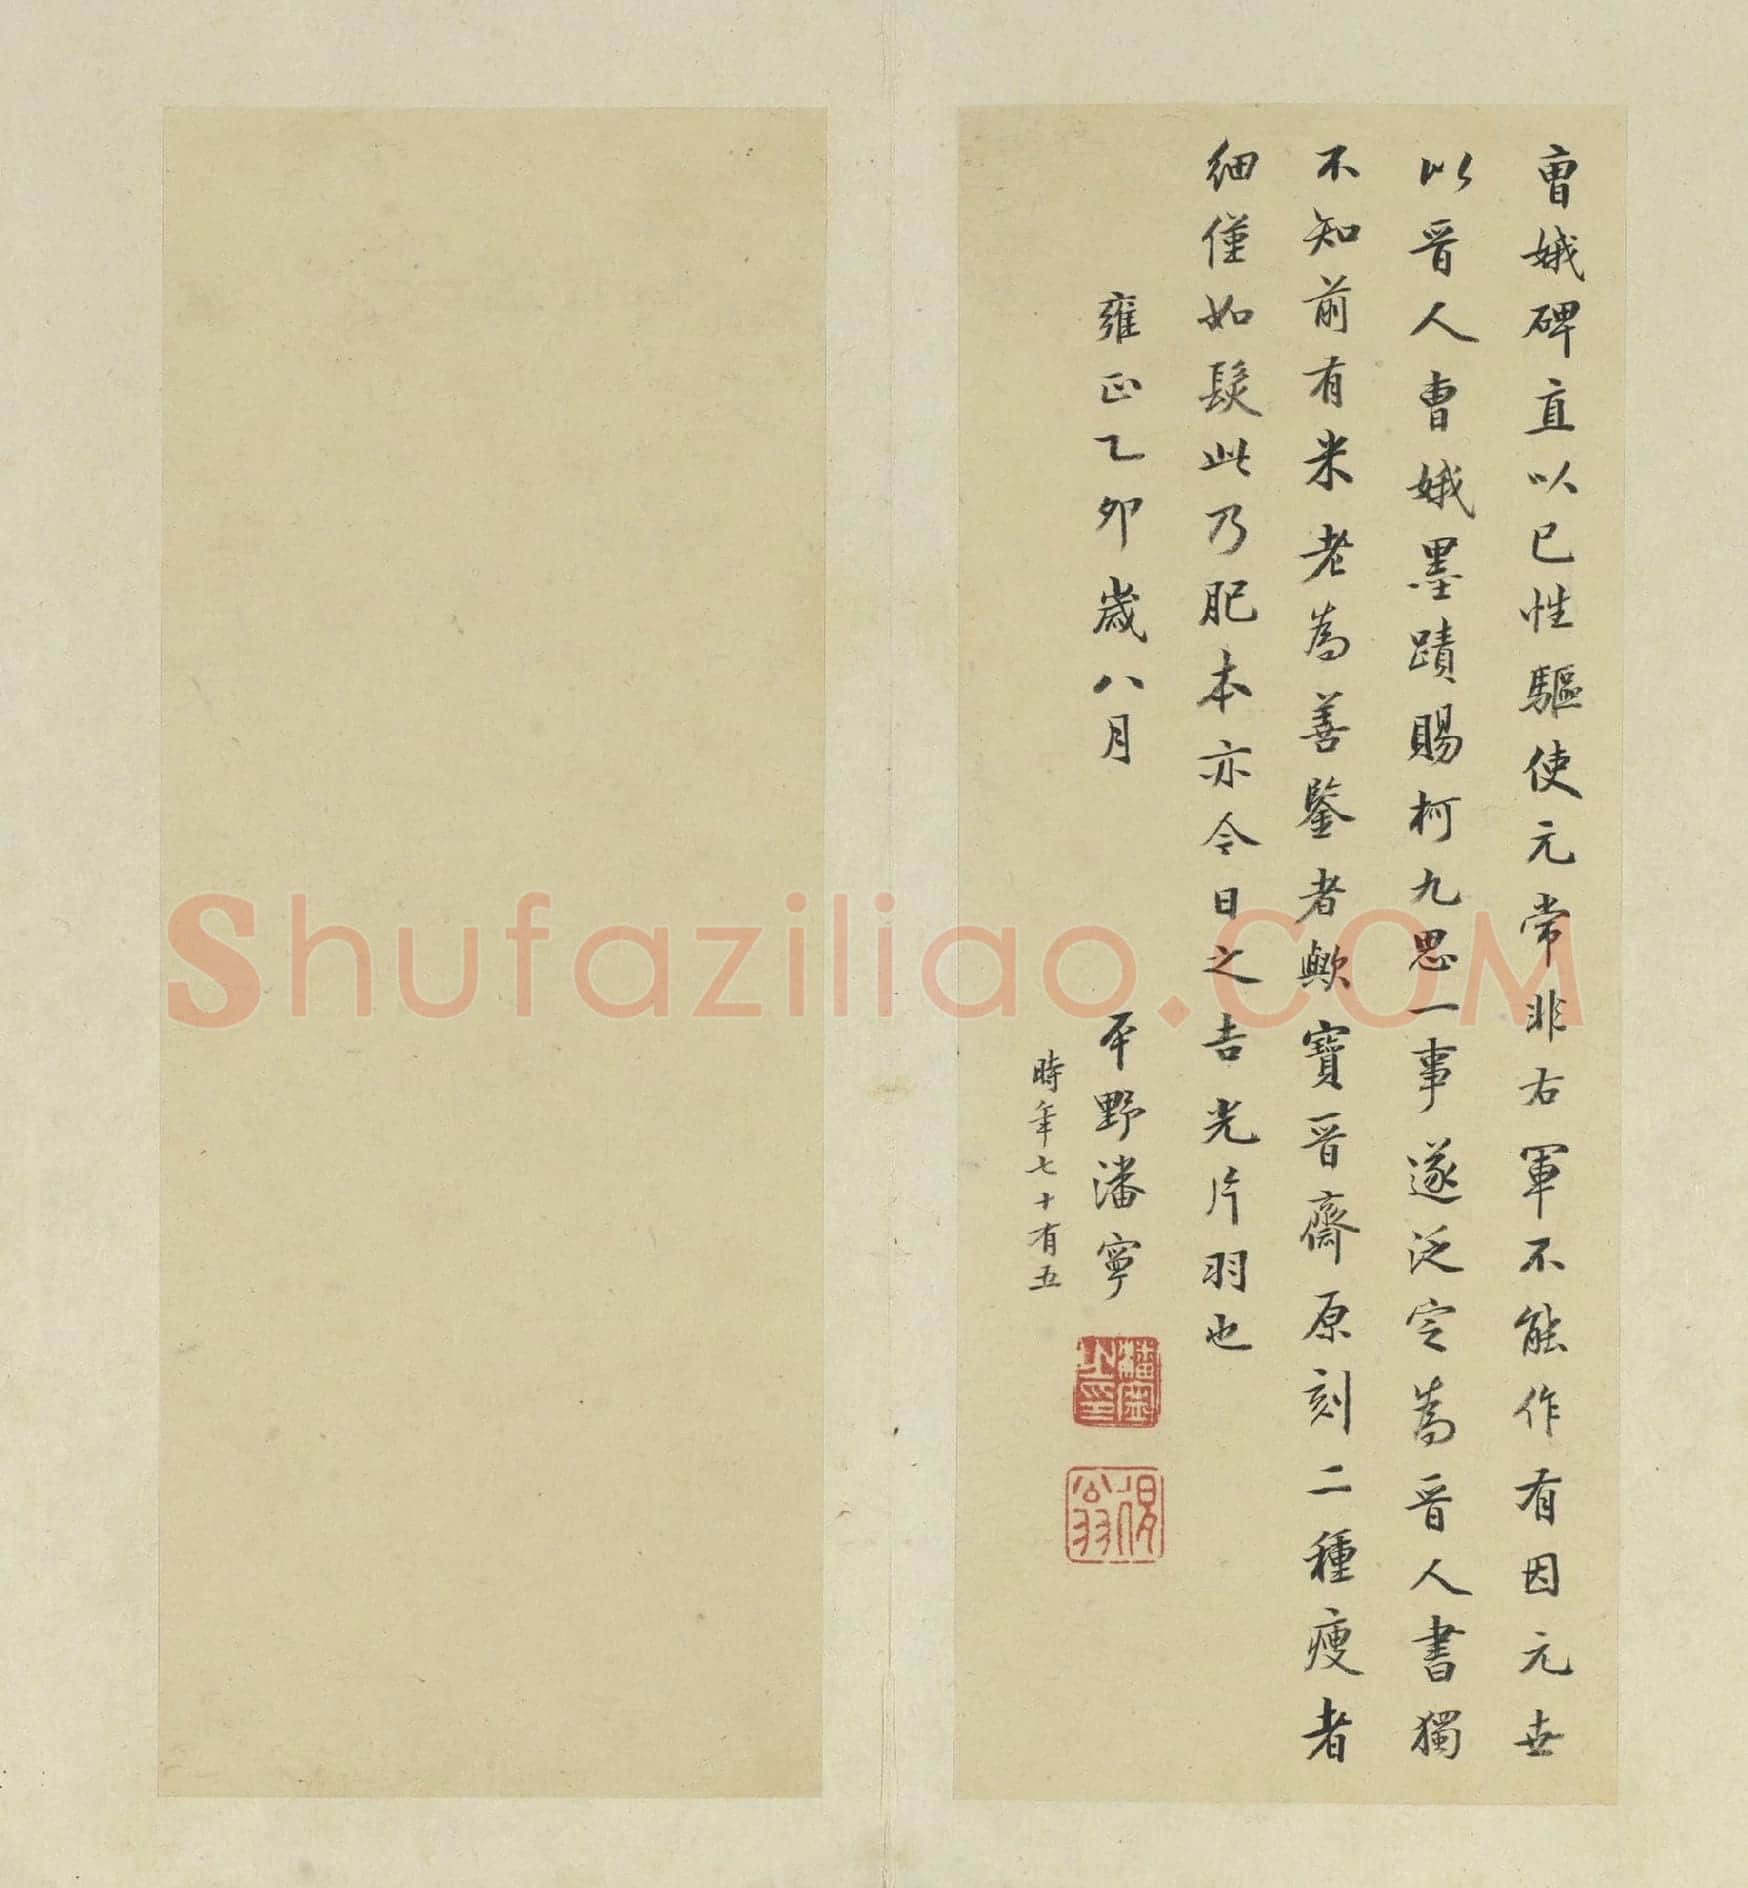 曹娥碑直以己性驅使元常非右軍不能作有因元世
以晉人曹娥墨蹟賜柯九思一事遂泛定為晉人書獨
不知前有米老為善鑒者歟寶晉齋原刻二種瘦者
細僅如髮此乃肥本亦今日之吉光片羽也
雍正乙卯歲八月
平野潘寧
時年七十有五
潘寧之印
Shufaziliao.COM